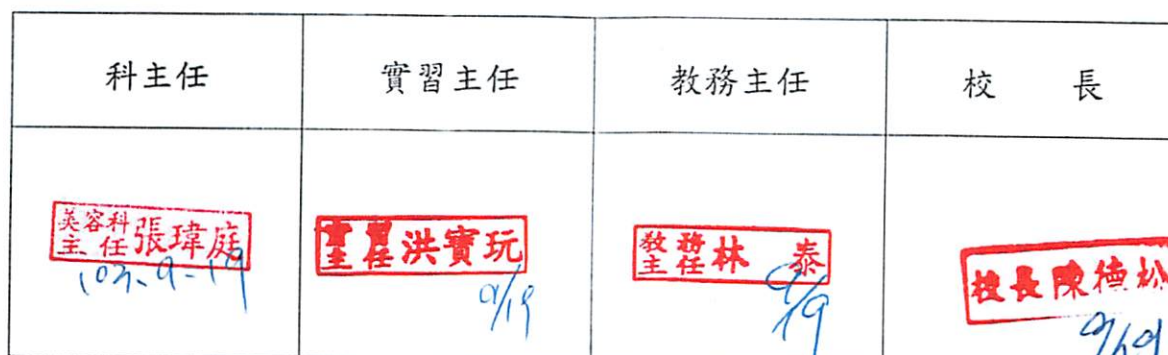 科主任
實習主任
教務主任
校 長
美容科
主任 張瑋庭
103.9-19
實習
主任 洪寶玩
9/19
教務
主任 林 泰
9/19
校長陳德松
9/19